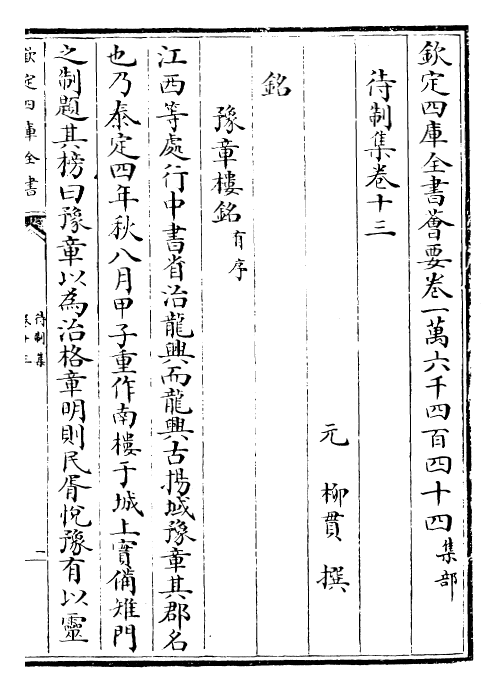 欽定四庫全書薈要卷一萬六千四百四十四集部
待制集卷十三
元 柳貫 撰
銘
豫章樓銘有序
江西等處行中書省治龍興而龍興古揚域豫章其郡名
也乃泰定四年秋八月甲子重作南樓于城上實備雉門
之制題其榜曰豫章以為治格章明則民胥悅豫有以靈
欽定四庫全書
待制集
卷十三
一